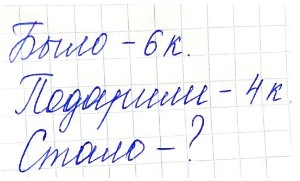 Было – 6 к.
Подарили – 4 к
Стало – ?